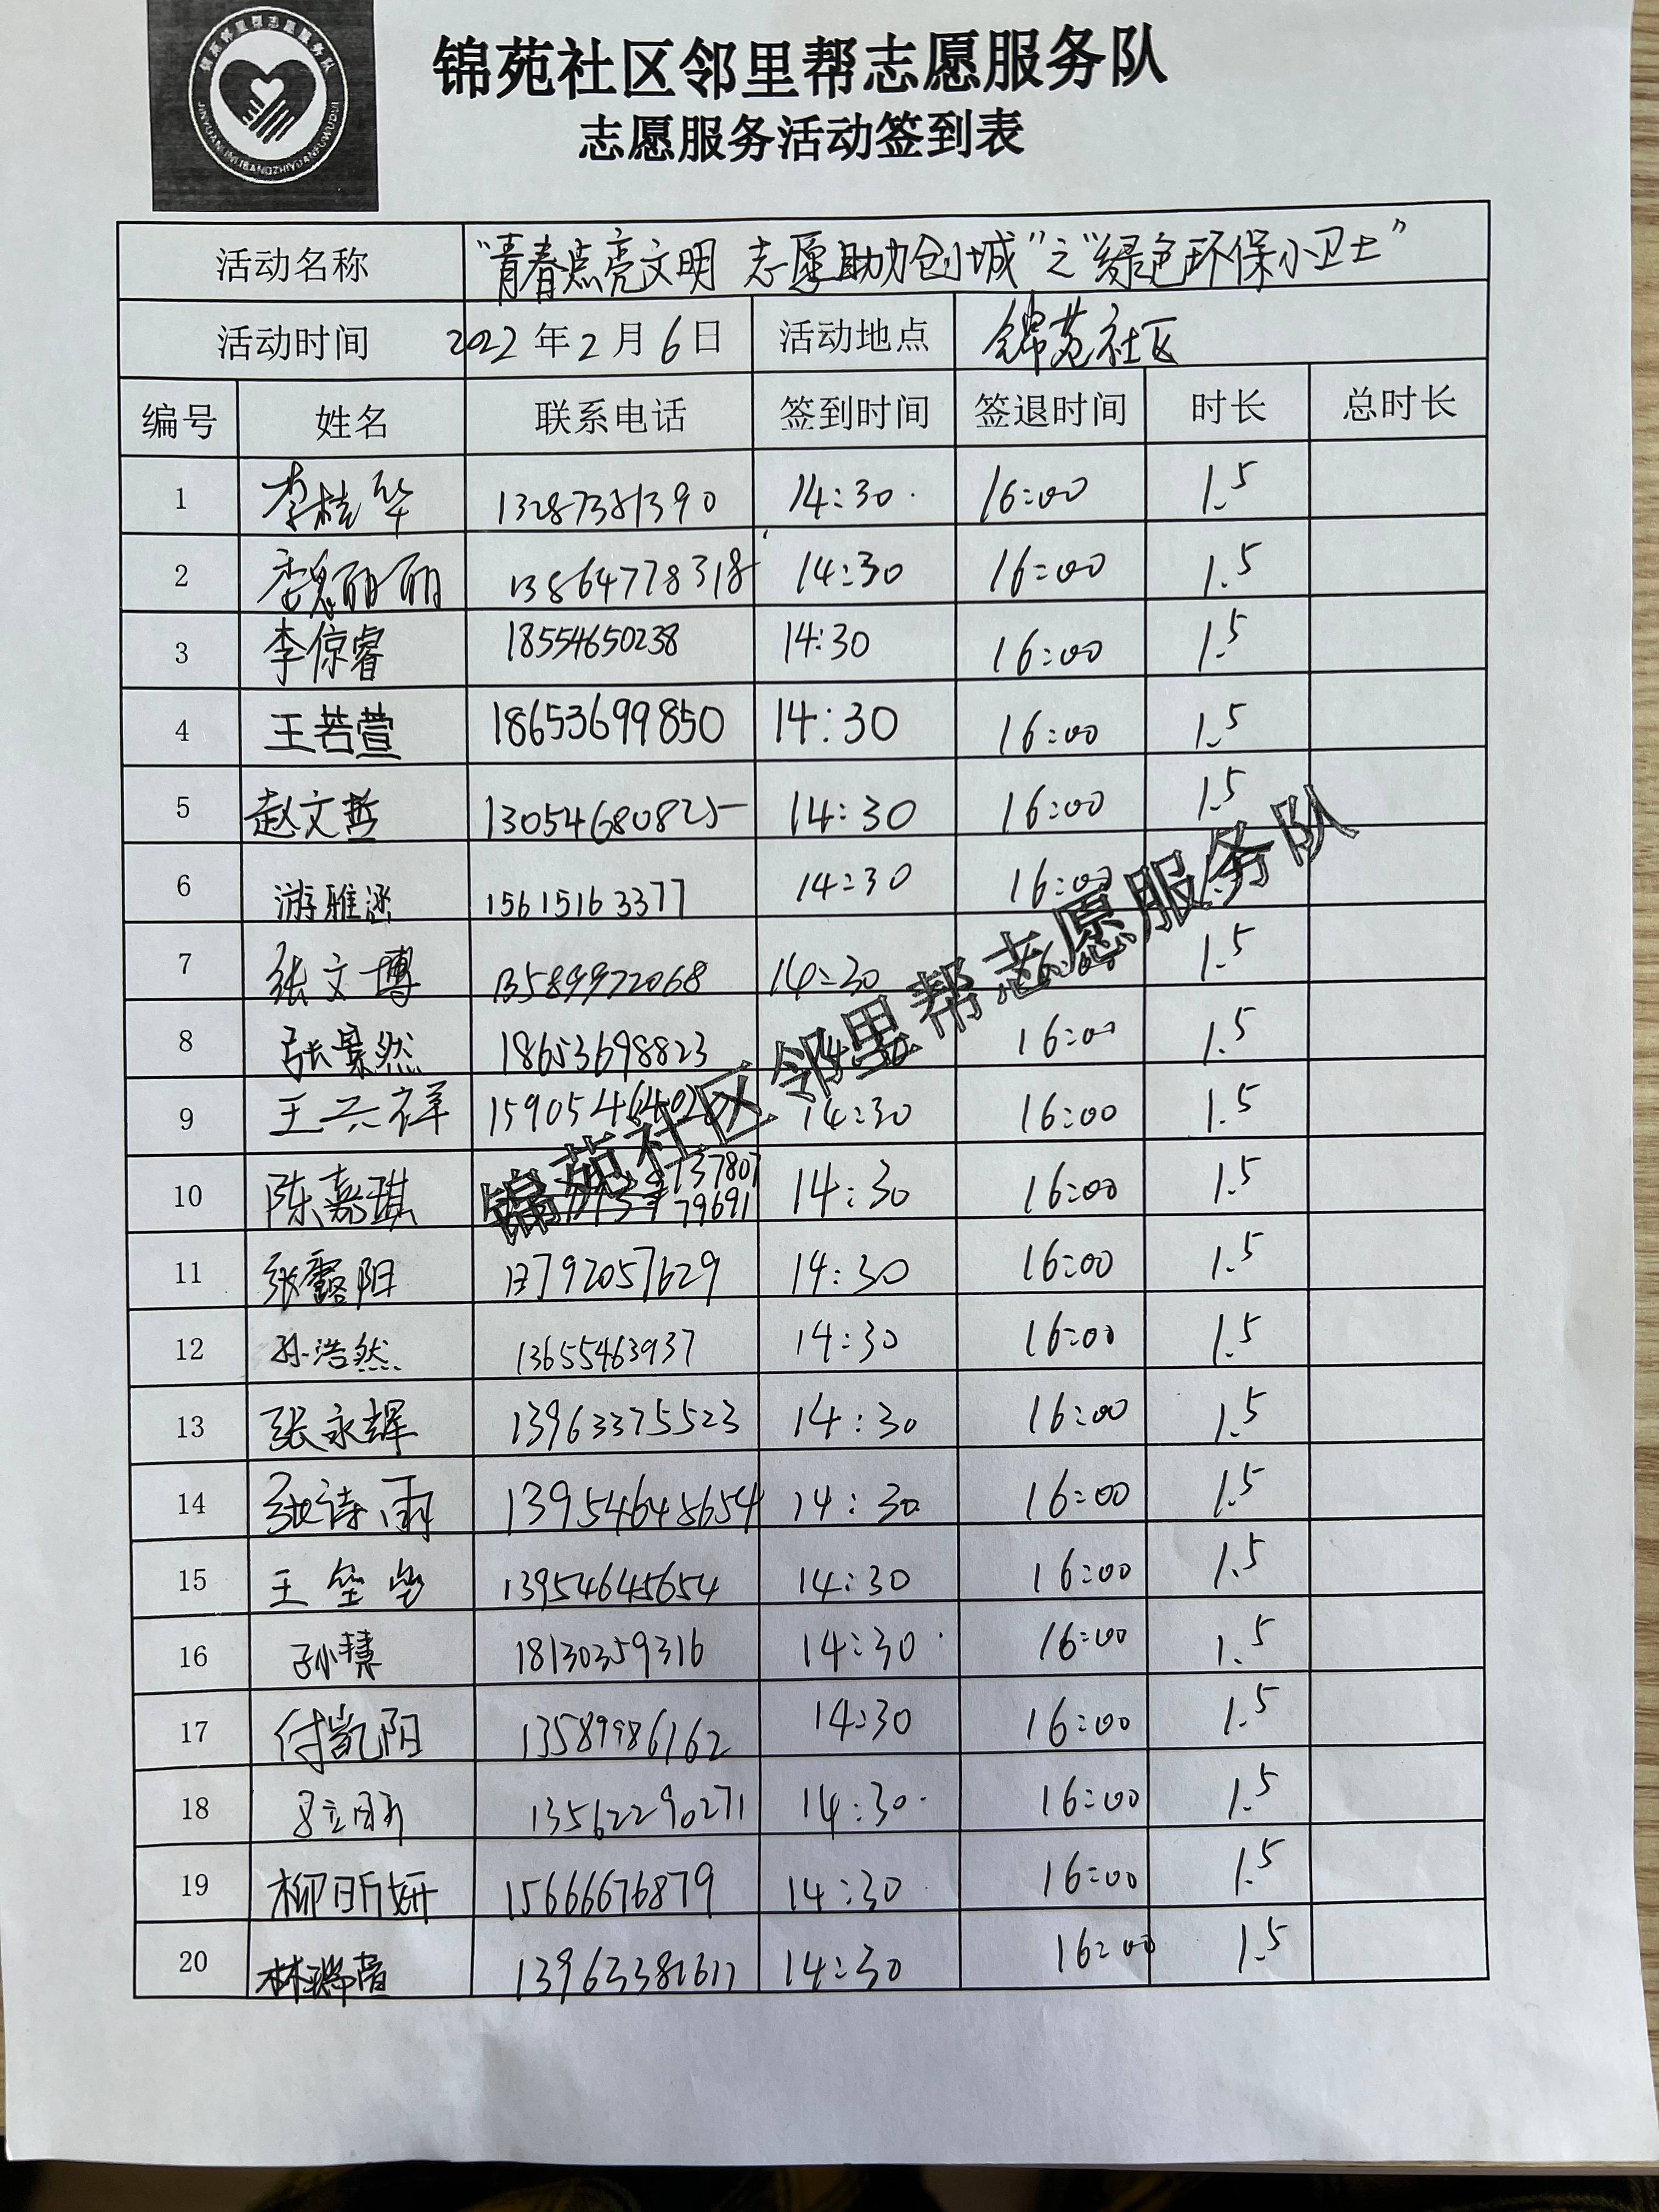 锦苑邻里帮志愿服务队
JINYUANLINLIBANGZHIYUANFUWUDUI
锦苑社区邻里帮志愿服务队
志愿服务活动签到表
活动名称 "青春点亮文明 志愿助力创城"之"绿色环保小卫士"
活动时间 2022年2月6日 活动地点 锦苑社区
编号 姓名 联系电话 签到时间 签退时间 时长 总时长
1 李桂华 13287381390 14:30 16:00 1.5
2 魏丽丽 13864778318 14:30 16:00 1.5
3 李倞睿 18554650238 14:30 16:00 1.5
4 王若萱 18653699850 14:30 16:00 1.5
5 赵文哲 13054680825 14:30 16:00 1.5
6 游雅涵 15615163377 14:30 16:00
7 张文博 13589972068 14:30 16:00 1.5
8 张景然 18653698823 16:00 1.5
9 王兴祥 14:30 16:00 1.5
10 陈嘉琪 14:30 16:00 1.5
11 张露阳 13792057629 14:30 16:00 1.5
12 孙浩然 13655463937 14:30 16:00 1.5
13 张永辉 13963375523 14:30 16:00 1.5
14 张诗雨 13954645654 14:30 16:00 1.5
15 王 13954645654 14:30 16:00 1.5
16 孙慧 18130359316 14:30 16:00 1.5
17 付凯阳 13589986162 14:30 16:00 1.5
18 13562290271 14:30 16:00 1.5
19 柳昕妍 15666676879 14:30 16:00 1.5
20 林瑞蓿 14:30 16:00 1.5
锦苑社区邻里帮志愿服务队